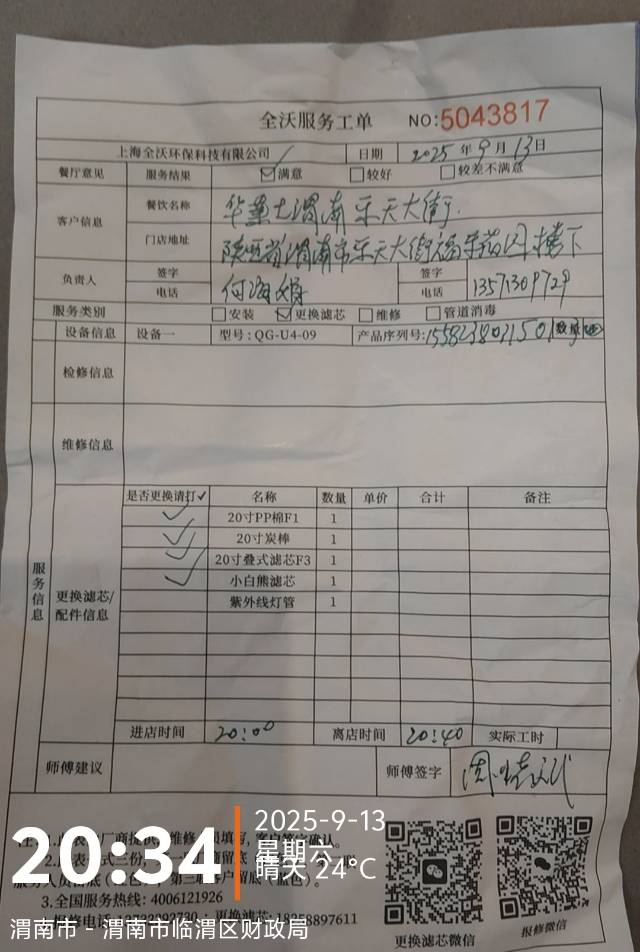 全沃服务工单 NO:5043817
上海全沃环保科技有限公司 日期 2025年9月13日
餐厅意见 服务结果 满意 较好 较差不满意
客户信息 餐饮名称 华莱士渭南乐天大街
门店地址 陕西省渭南市乐天大街福 花园楼下
负责人 签字 何海娟 签字
电话 电话 13571309729
服务类别 安装 更换滤芯 维修 管道消毒
设备信息 设备一 型号:QG-U4-09 产品序列号: 数量
检修信息
维修信息
服务信息
更换滤芯/配件信息
是否更换请打✓ 名称 数量 单价 合计 备注
✓ 20寸PP棉F1 1
✓ 20寸炭棒 1
✓ 20寸叠式滤芯F3 1
✓ 小白熊滤芯 1
紫外线灯管 1
进店时间 20:00 离店时间 20:40 实际工时
师傅建议 师傅签字
3.全国服务热线: 4006121926
更换滤芯: 18258897611
更换滤芯微信 报修微信
20:34
2025-9-13
星期六
晴天 24℃
渭南市 - 渭南市临渭区财政局